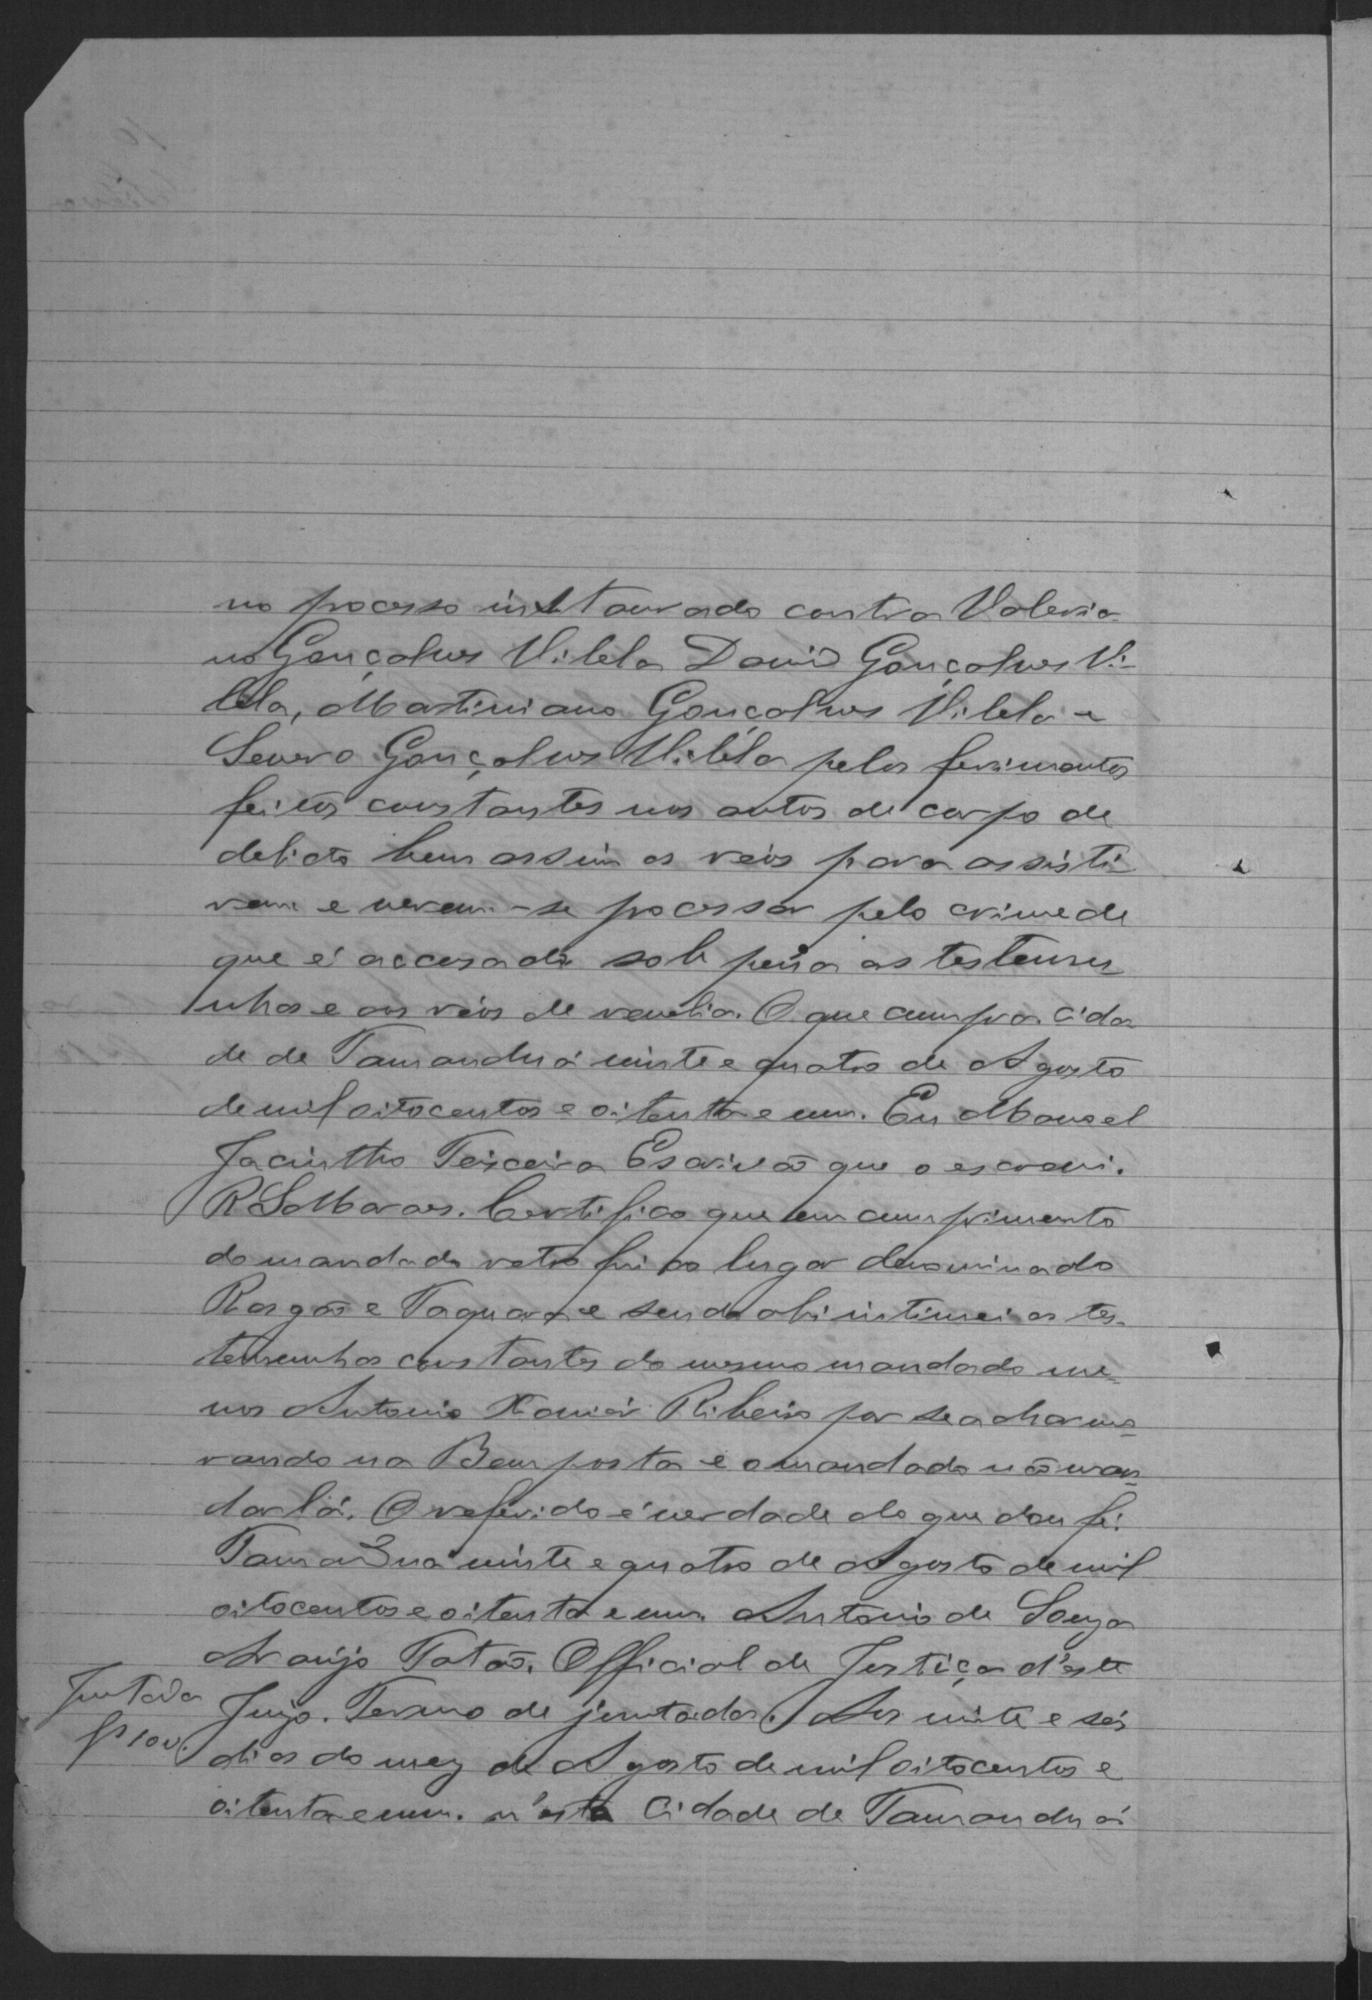 no processo instaurado contra Valeria
no Gonçalves Vilela David Gonçalves Vi-
lela, Martiniano Gonçalves Vilela e
Severo Gonçalves Viléla pelos ferimentos
feitos constantes nos autos de corpo de
delicto bem assim os réos para assisti
rem e verem-se processar pelo crime de
que é accusado sob pena as testemu
nhas e aos réos de revelia. O que cumpra. Cida
de de Tamanduá vinte e quatro de Agosto
de mil oitocentos e oitenta e um. Eu Manoel
Jacintho Teixeira Escrivão que o escrevi.
R. S. Moraes. Certifico que em cumprimento
do mandado retro fui ao lugar denominado
Rasgão e Taquara e sendo ahi intimei as tes-
temunhas constantes do mesmo mandado me-
nos Antonio Xavier Ribeiro por se achar mo-
rando na Bemposta e o mandado não man-
dar lá. O referido é verdade do que dou fé.
Tamanduá vinte e quatro de Agosto de mil
oitocentos e oitenta e um. Antonio de Souza
Araújo Tatão. Official de Justiça d'este
Juizo. Termo de juntada. Aos vinte e seis
dias do mez de Agosto de mil oitocentos e
oitenta e um. n'esta Cidade de Tamanduá
Juntada